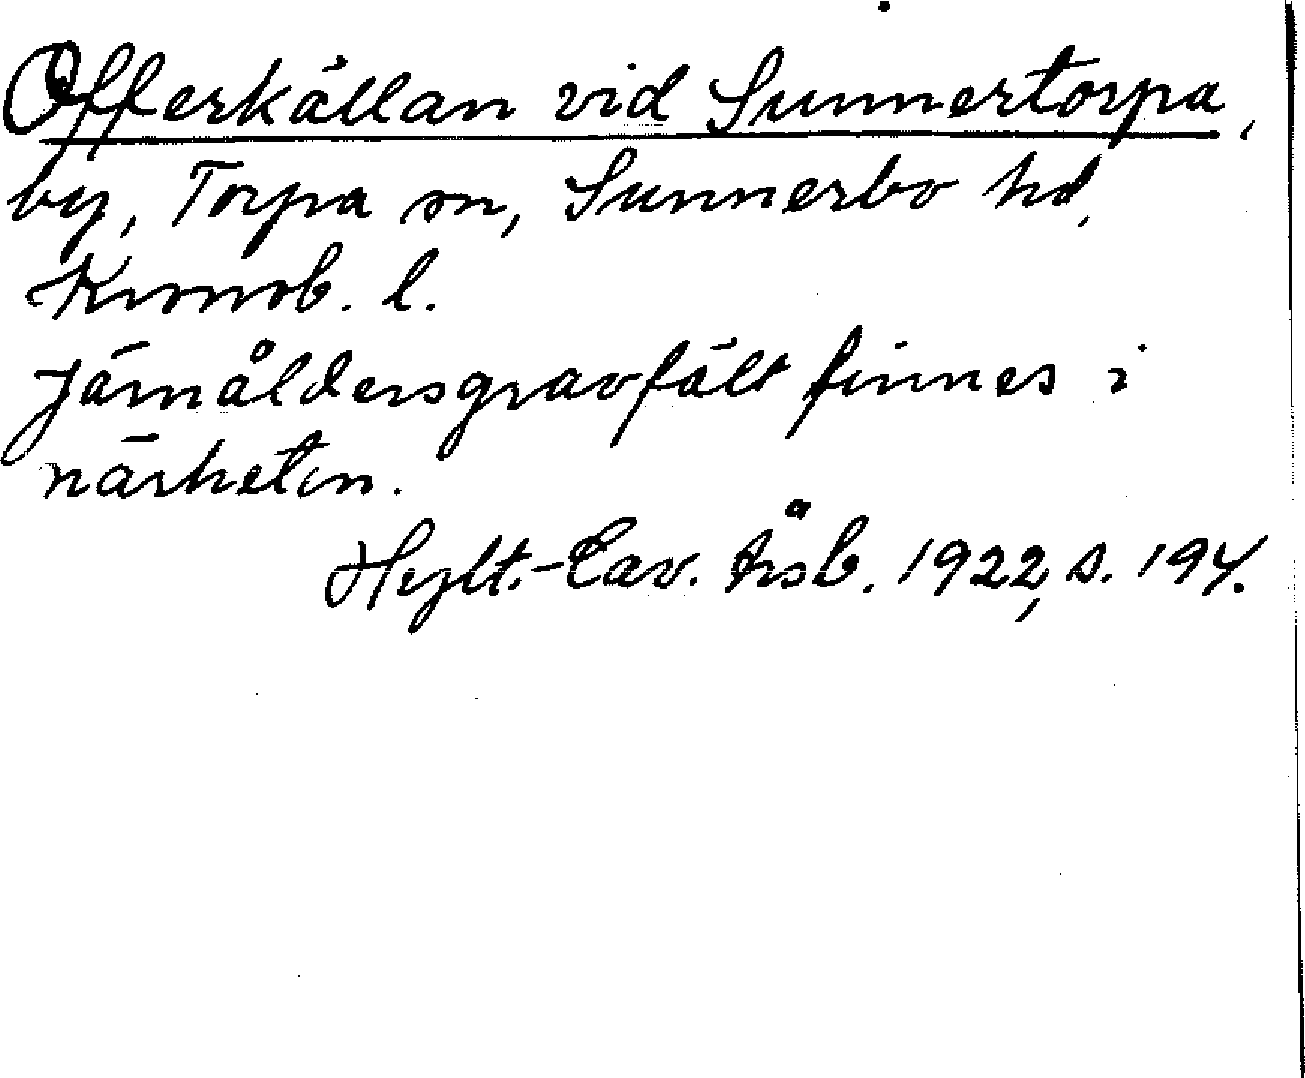 Offerkällan vid Sunnertorpa,
by, Torpa sn, Sunnerbo hd,
Kronob. l.
Järnåldersgravfält finnes i
närheten.
Hylt.-Cav. Årsb. 1922, s. 194.